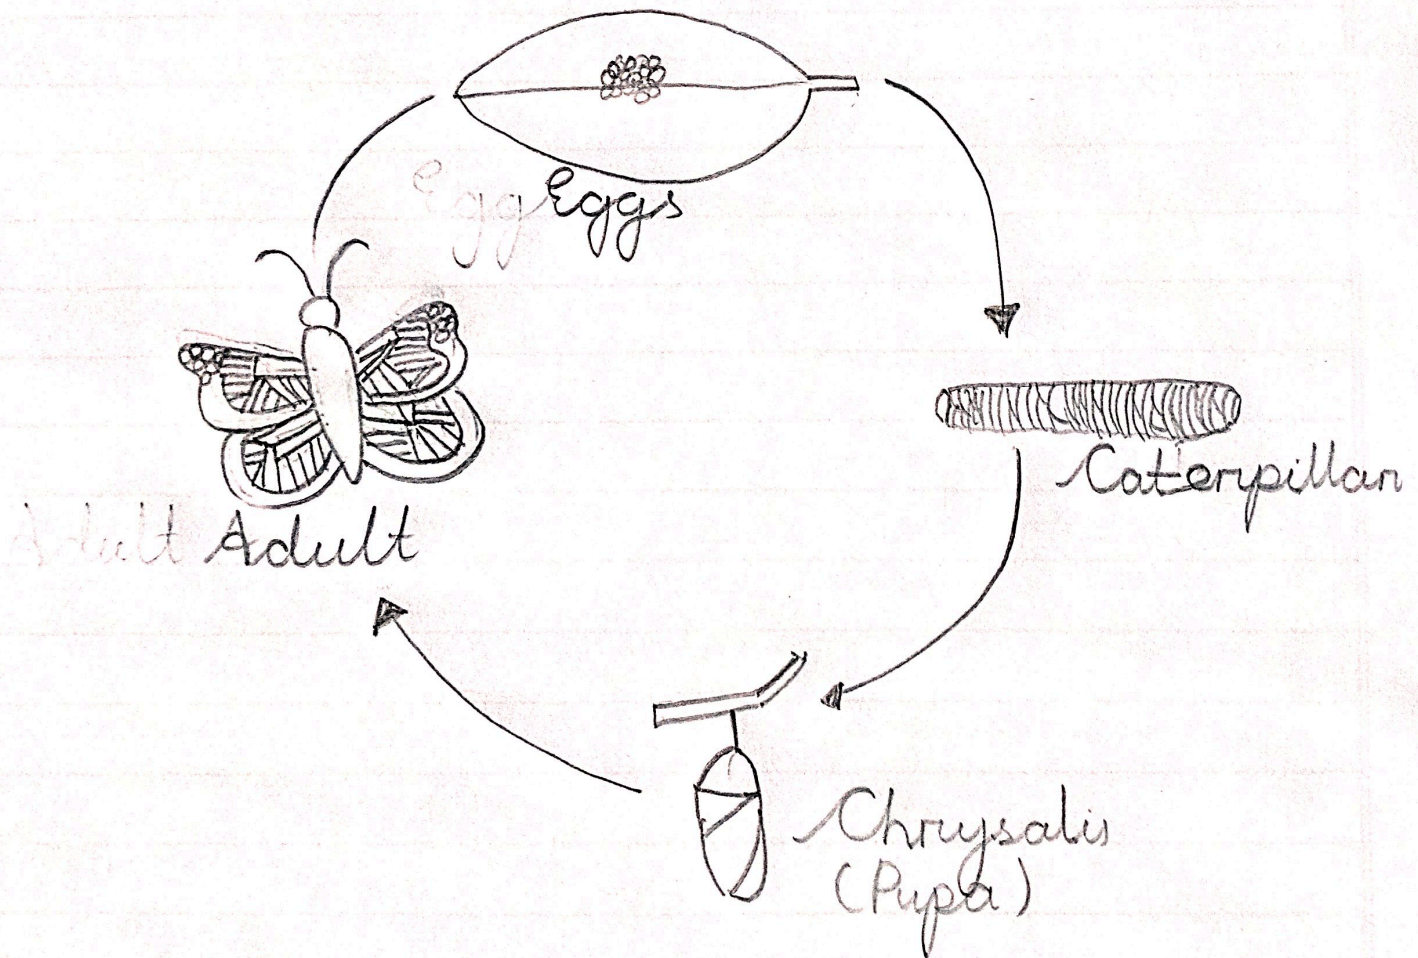 Eggs
Caterpillar
Adult
Chrysalis
(Pupa)